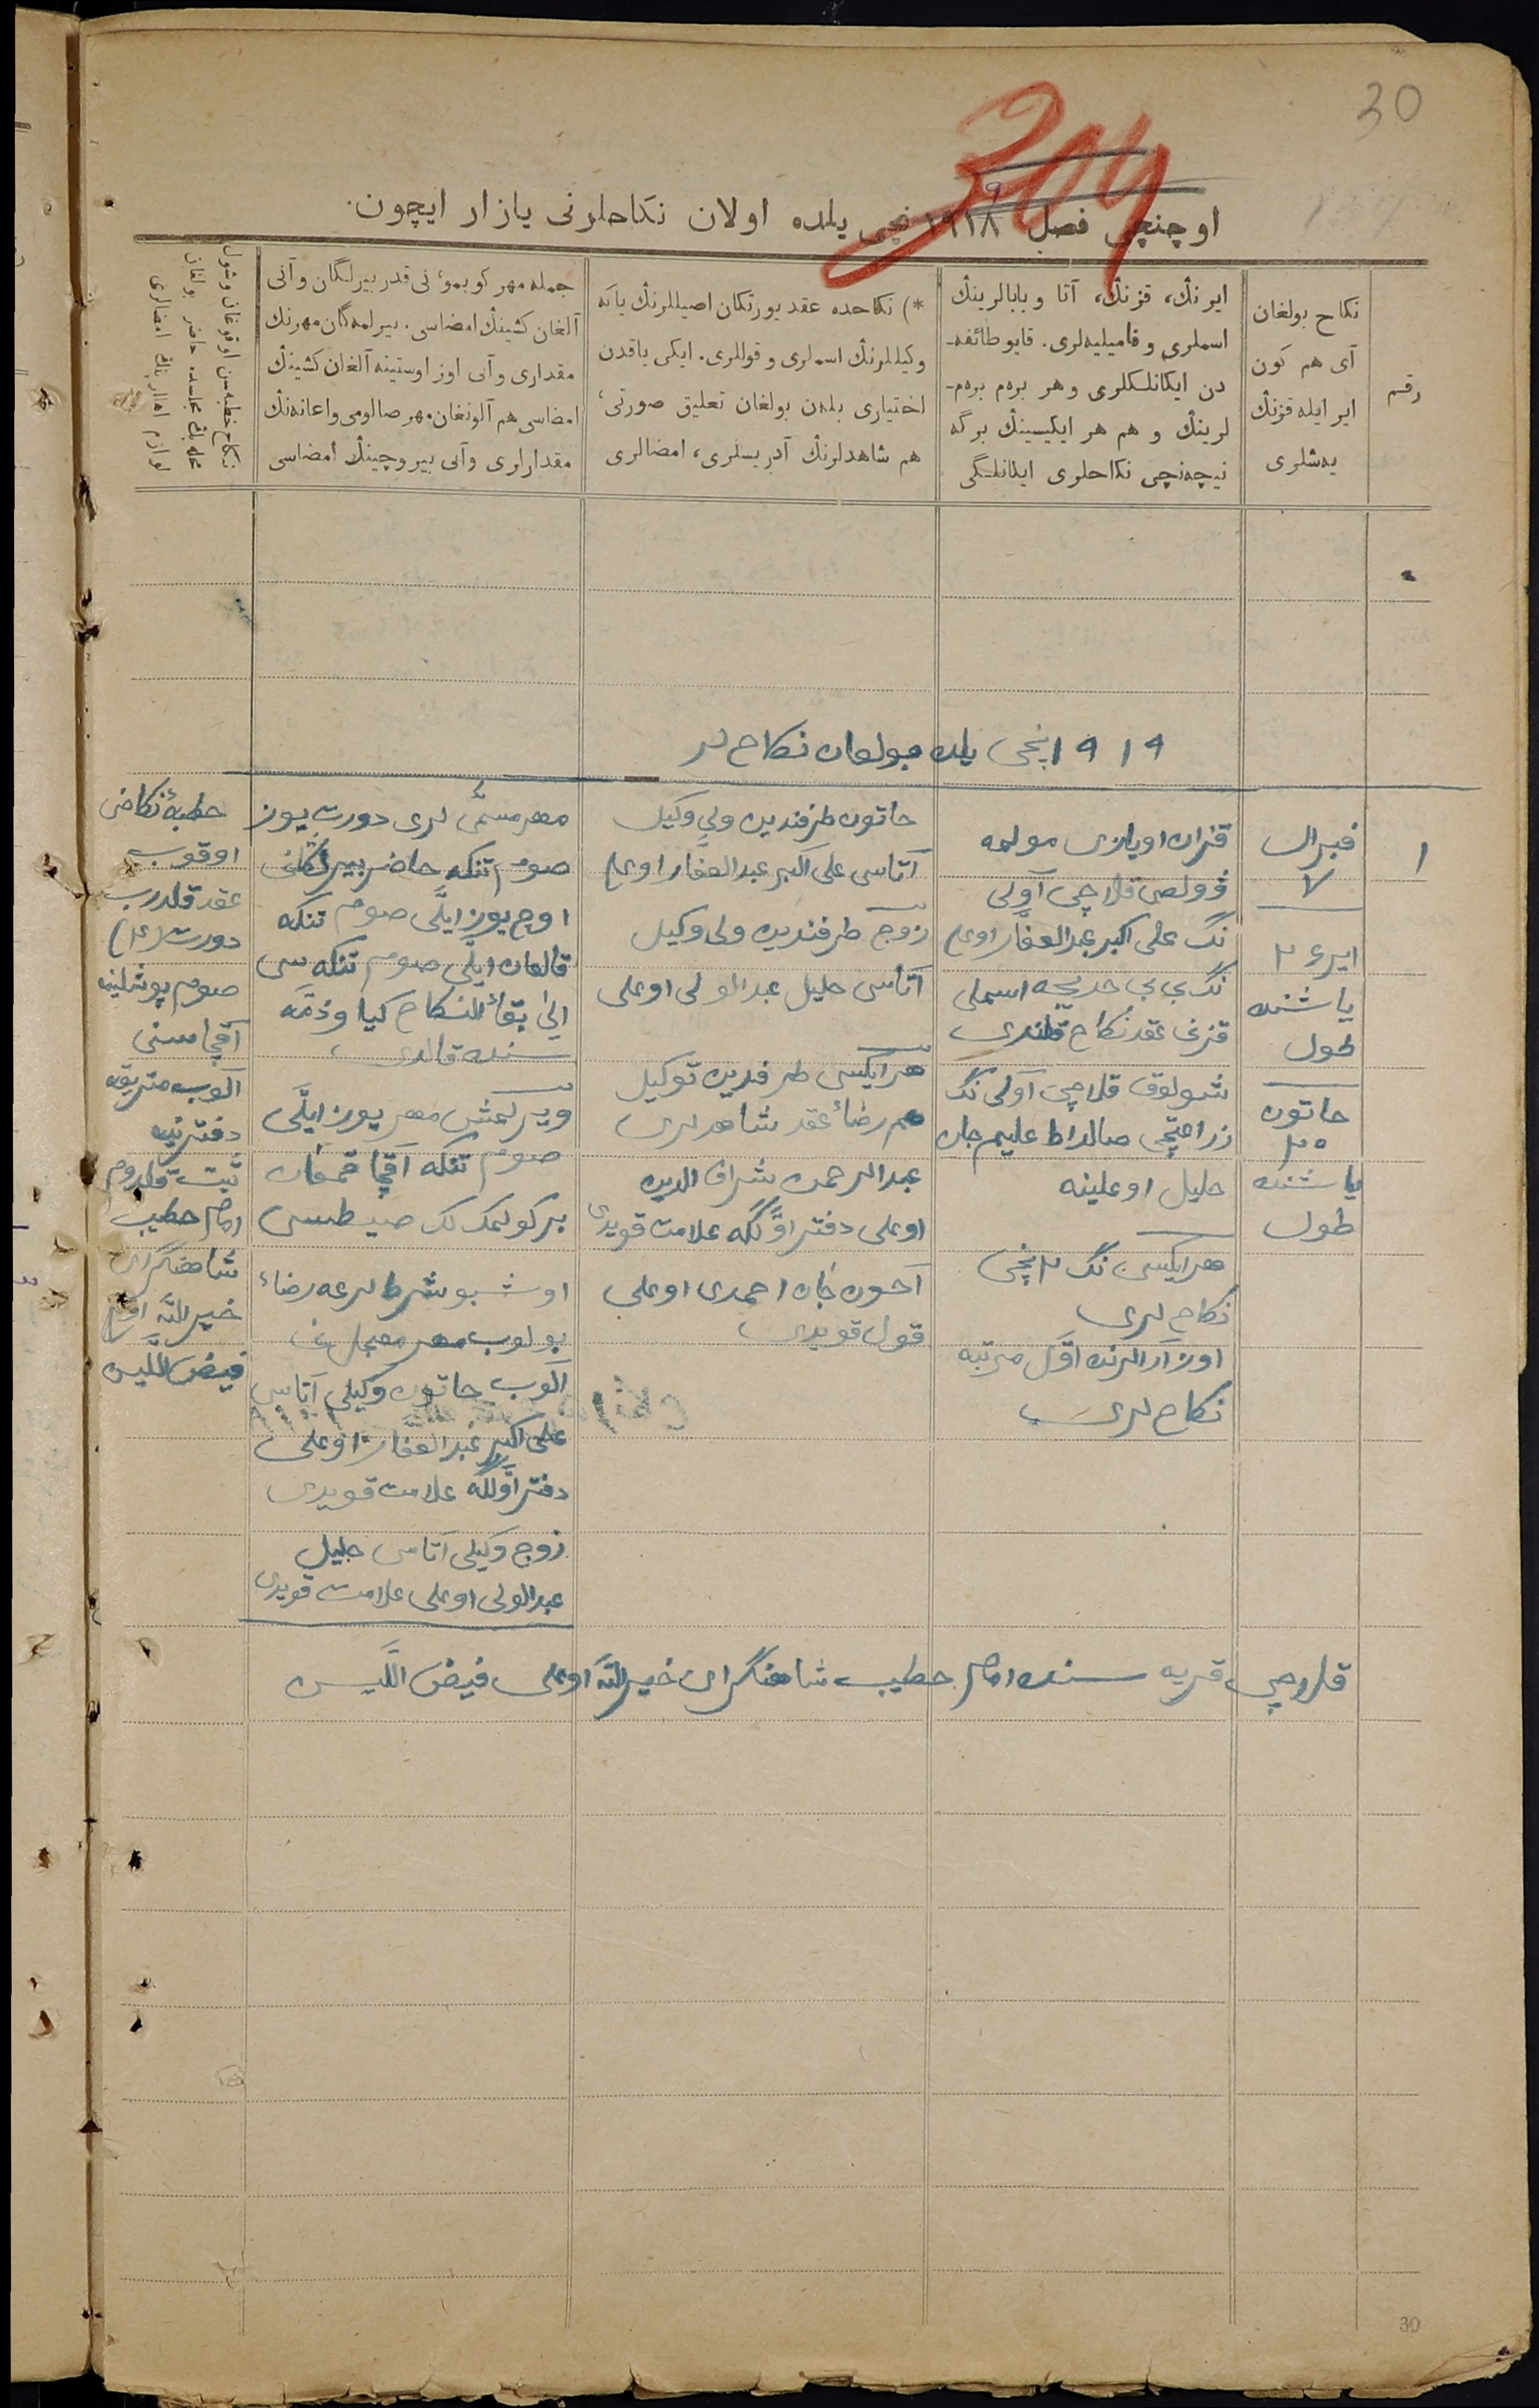 30
304
اوچنچی فصل ۱۹۱۸ نچی یلده اولان نکاحلرنی یازار ایچون.
رقم
نکاح بولغان
آی هم کون
ایر ایله قزنڭ
یەشلری
ایرنڭ، قزنڭ، آتا و بابالرینڭ
اسملری و فامیلیەلری. قایو طائفه‌-
دن ایکانلکلری و هر برەم برەم-
لرینڭ و هم هر ایکیسینڭ برگه
نیچەنچی نکاحلری ایکانلگی
*) نکاحده عقد یورتکان اصیللرنڭ یاکه
وکیللرنڭ اسملری و قوللری. ایکی یاقدن
اختیاری بلەن بولغان تعلیق صورتی،
هم شاهدلرنڭ آدریسلری، امضالری
جمله مهر کوبمو، نی قدر بیرلگان و آنی
آلغان کشینڭ امضاسی. بیرلمەگان مهرنڭ
مقداری و آنی اوز اوستینه آلغان کشینڭ
امضاسی هم آلونغان مهر صالومی و اعانەنڭ
مقدارلری و آنی بیروچینڭ امضاسی
نکاح خطبەسن اوقوغان و شول
مجلسده حاضر بولغان
امضالری
۱۹۱۹ نچی یلده بولغان نکاح لر
۱
فبرال
۷
ایر ۲۴
یاشنده
طول
خاتون
۲۰
یاشنده
طول
قزان اویازی مولمه
ڤولصی قلاچی آولی
نڭ علی اکبر عبدالغفار اوغلی
نڭ بی بی خدیجه اسملی
قزنی عقد نکاح قلندی
شولوق قلاچی آولی نڭ
زراعتچی صالداط علیم جان
خلیل اوغلینه
هر ایکسی نڭ ۲ نچی
نکاح لری
اوز آرالرنده اوّل مرتبه
نکاح لری
خاتون طرفندین ولی وکیل
آتاسی علی اکبر عبدالغفار اوغلی
زوج طرفندین ولی وکیل
آتاسی خلیل عبدالولی اوغلی
هر ایکسی طرفدین توکیل
هم رضاء عقد شاهدلری
عبدالرحمن شرف الدین
اوغلی دفتر اوّلگه علامت قویدی
آخون جان احمدی اوغلی
قول قویدی
مهر مسمّی لری دورت یوز
صوم تنکه حاضر بیرلگانی
اوچ یوز ایللی صوم تنکه
قالغان ایللی صوم تنکه سی
الی بقاء النکاح کیاو ذمّه
سنده قالدی
ویرلمش مهر یوز ایللی
صوم تنکه آقچا
بر کولمک لک
اوشبو شرط لرغه رضاء
بولوب مهر معجل نی
آلوب خاتون وکیلی آتاسی
علی اکبر عبدالغفار اوغلی
دفتر اوّلگه علامت قویدی
زوج وکیلی آتاسی خلیل
عبدالولی اوغلی علامت قویدی
خطبهٔ نکاحنی
اوقوب
عقد قلدرب
دورت (۴)
صوم پوشلینه
آقچاسنی
آلوب متریقه
دفترینه
ثبت قلدوم
امام خطیب
شاهنگرای
خیرالله اوغلی
فیض اللین
قلاچی قریه سنده امام خطیب شاهنگرای خیرالله اوغلی فیض اللین
30